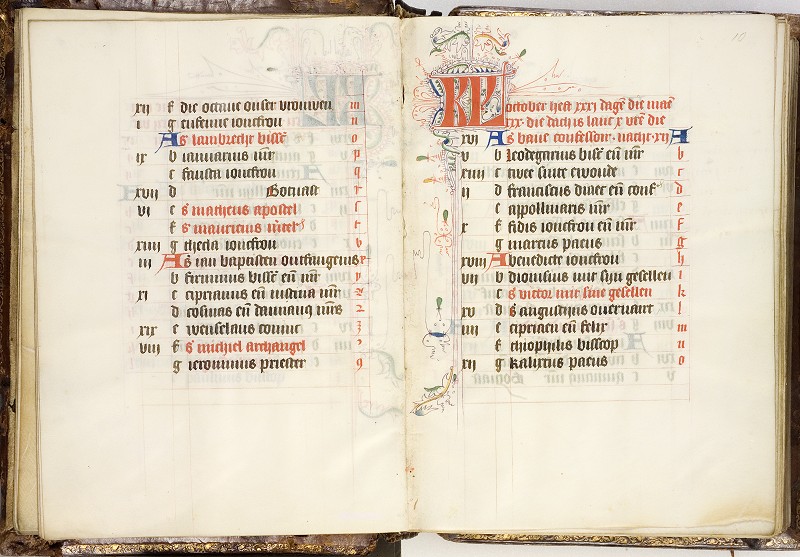 xij f die octave onser vrouwen m
i g eufemie ioncfrou n
A s lambrecht bisse o
ix b ianuarius mr p
c fausta ioncfrou q
xvij d Gotnast r
vi e s matheus apostel s
f s mauricius
xiiij g thecla ioncfrou v
iij A s ian baptisten ontfangenis x
b firminus bisse en mr y
xi c ciprianus en iustina mr z
d cosmas en damianus mrs 2
xix e wenselaus coninc 3
viij f s michiel archangel
g ieronimus priester 9
10
KL october heft xxxi dage die mae
xxx die dach is lanc x uren die
xvi A s bave confessoer nacht xij A
v b Leodegarius bisse en mr b
xiij c twee sinte ewoude c
ij d franciscus en conf d
e appollinaris mr e
x f fidis ioncfrou en mr f
g marcus paeus g
xviij A benedicte ioncfrou h
vij b dionisius mr sijn gesellen i
c s victor mr sine gesellen k
xv d s augustijns overvaert l
iiij e cipriaen en felix m
f thiophilus bisscop n
xij g kalixtus paeus o